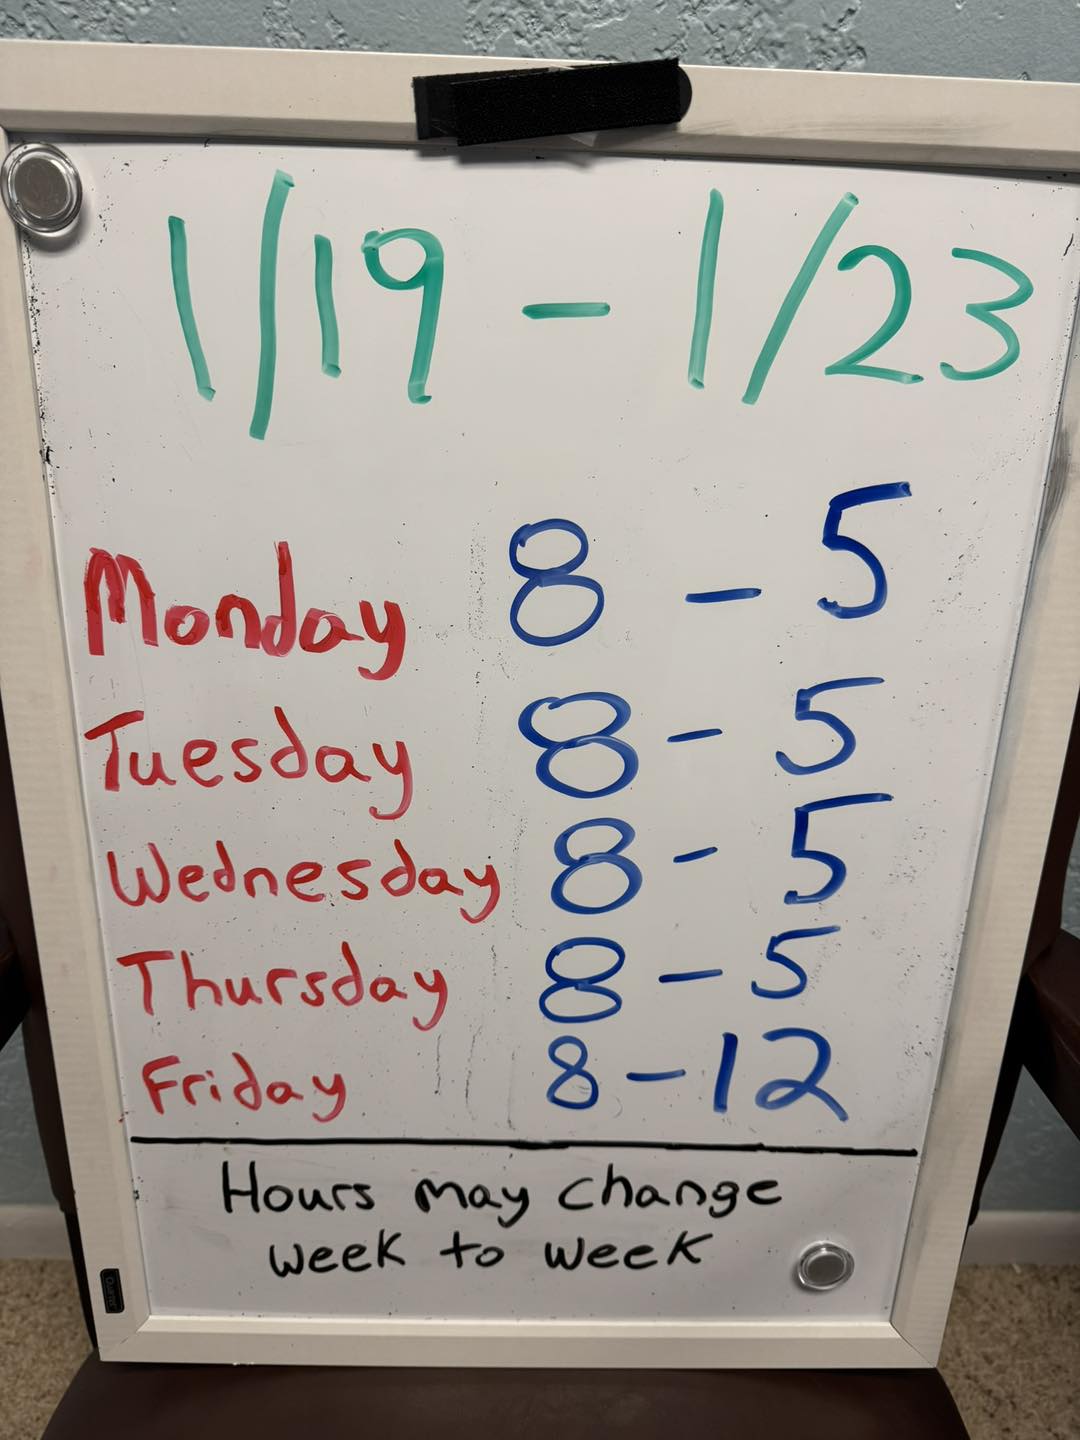 1/19 - 1/23
Monday 8 - 5
Tuesday 8 - 5
Wednesday 8 - 5
Thursday 8 - 5
Friday 8 - 12
Hours may change
week to week